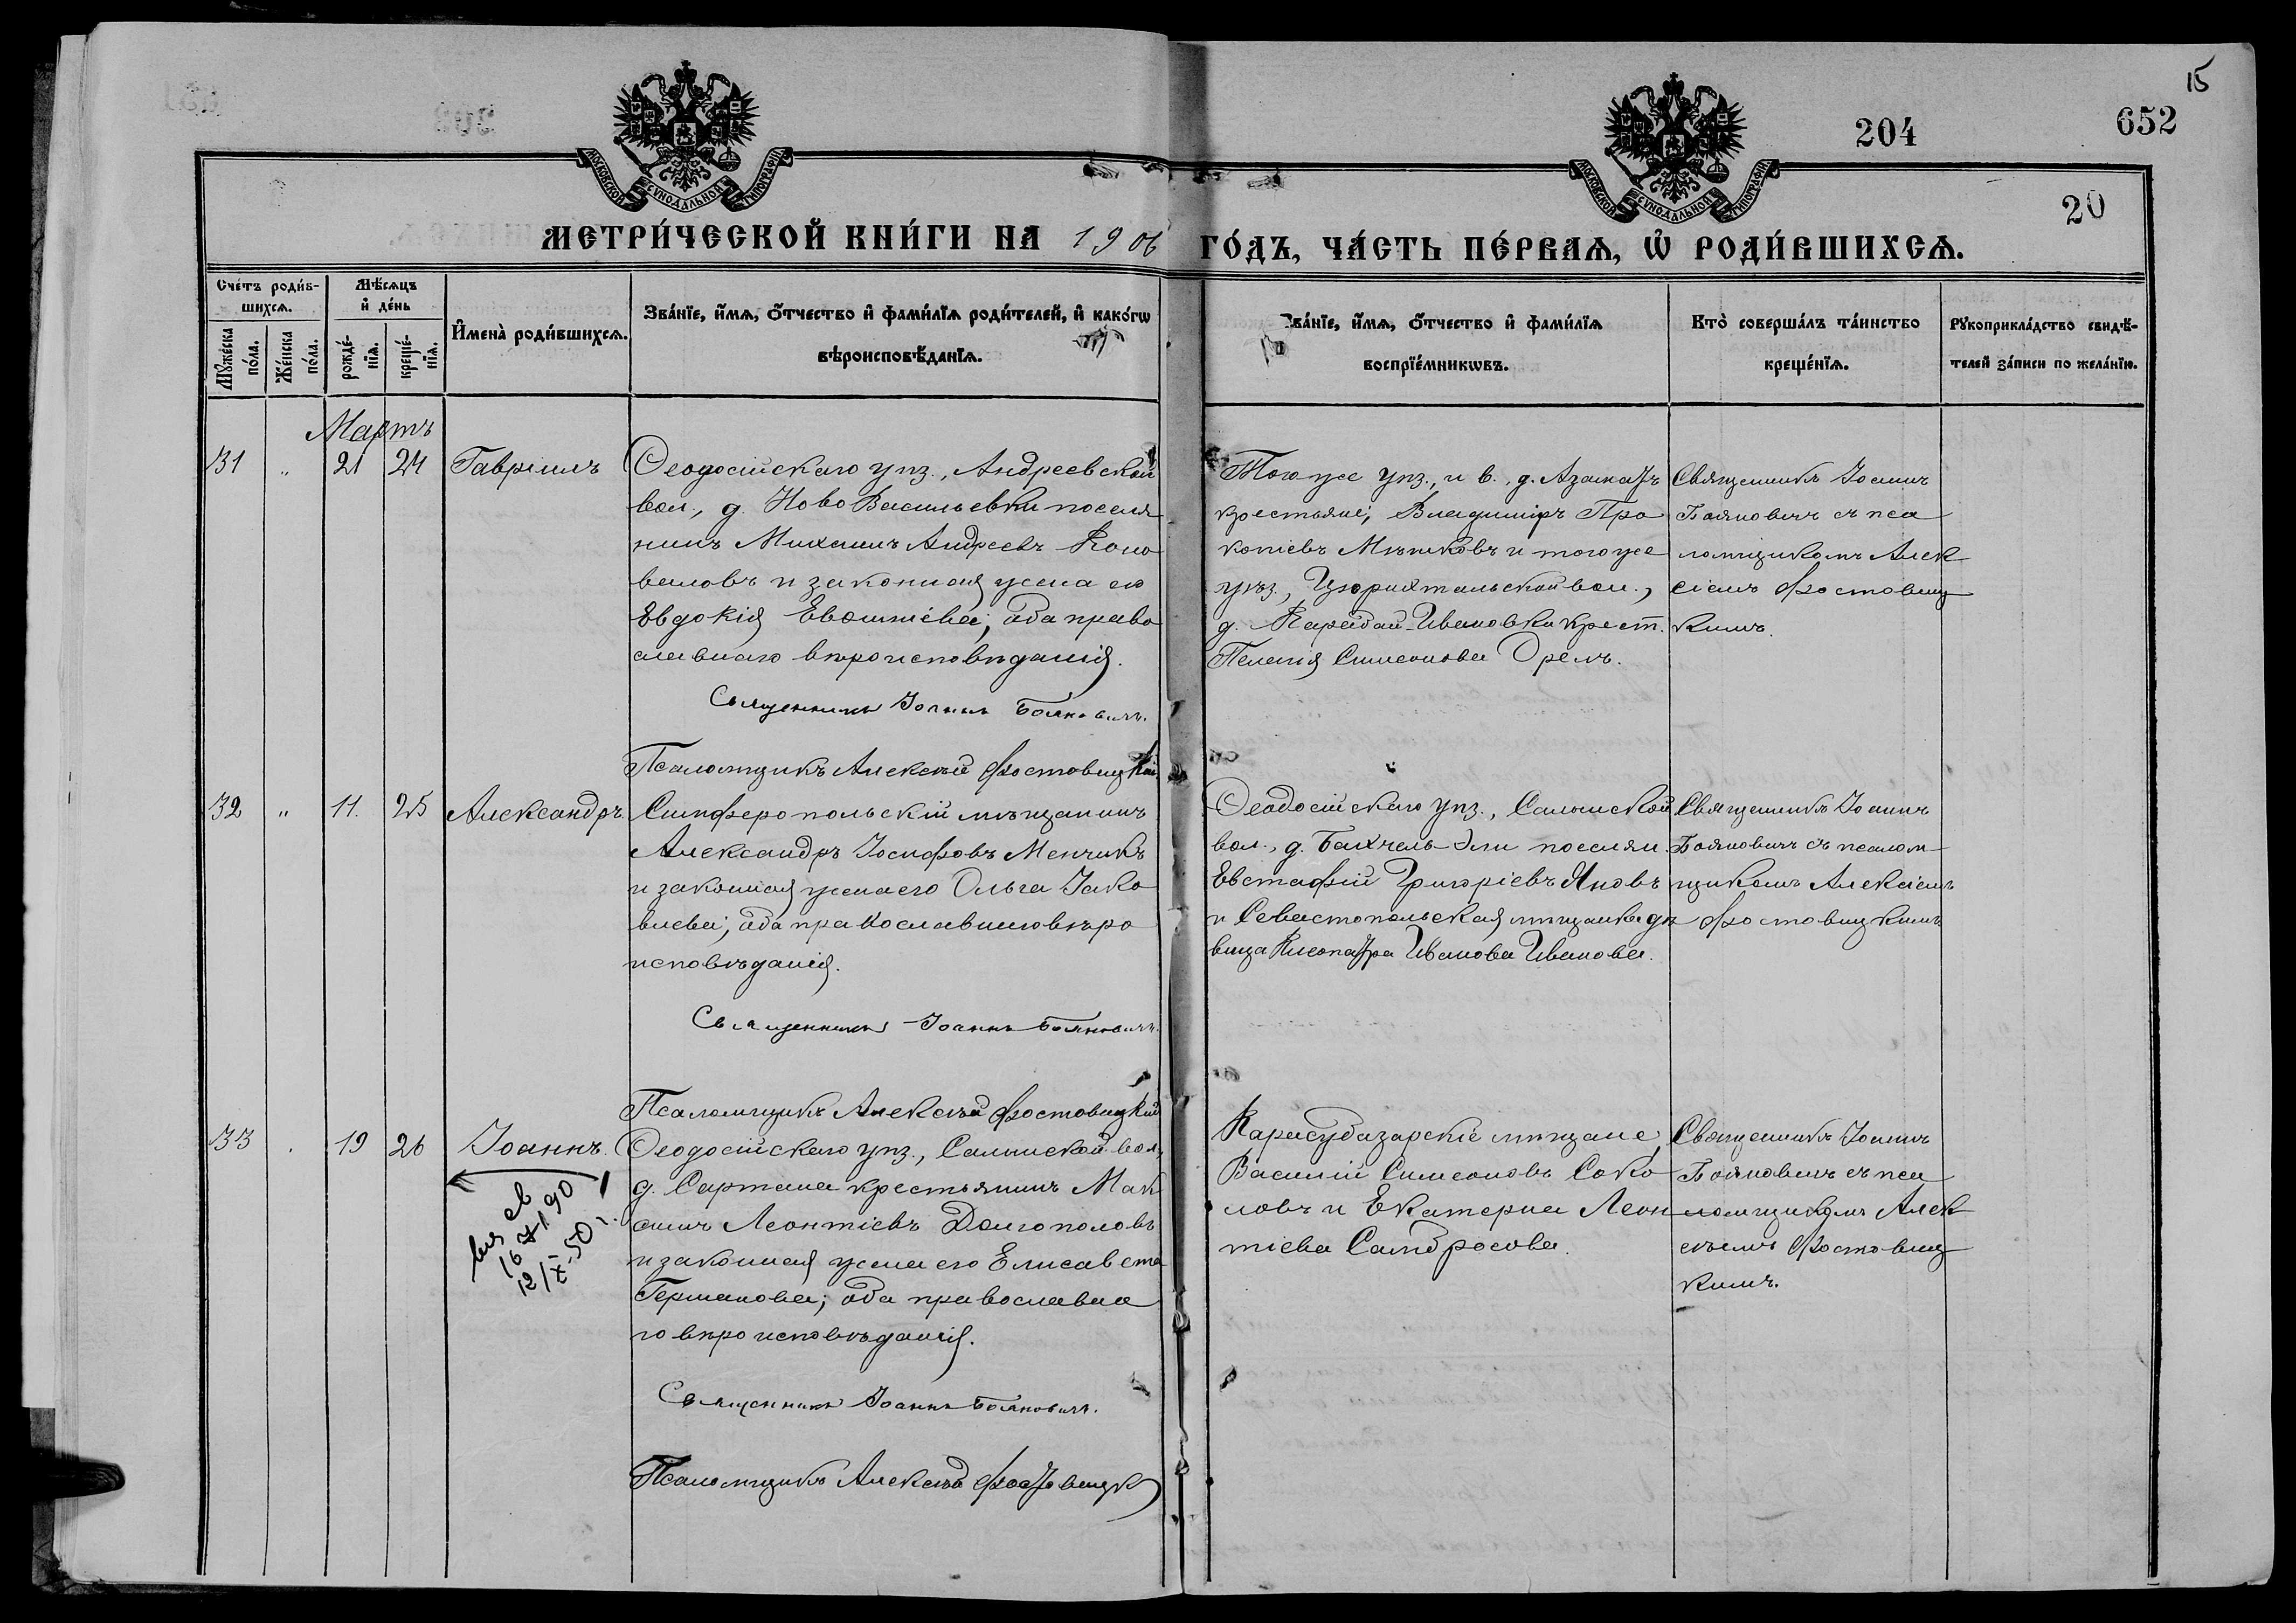 15
204
652
20
МОСКОВСКОЙ СѴНОДАЛЬНОЙ ТИПОГРАФІИ
МОСКОВСКОЙ СѴНОДАЛЬНОЙ ТИПОГРАФІИ
МЕТРИ́ЧЕСКОЙ КНИ́ГИ НА 1906 ГО́ДЪ, ЧА́СТЬ ПЕ́РВАѦ, Ѡ҆ РОДИ́ВШИХСѦ.
Сче́тъ роди́в-
шихсѧ.
Мꙋ́жеска по́ла.
Же́нска по́ла.
Мѣ́сѧцъ
и҆ де́нь
рожде́-
нїѧ.
креще́-
нїѧ.
И҆мена̀ роди́вшихсѧ.
Зва́нїе, и҆́мѧ, ѻ҆́тчество и҆ фами́лїѧ роди́телей, и҆ како́гѡ
вѣроисповѣ́данїѧ.
Зва́нїе, и҆́мѧ, ѻ҆́тчество и҆ фами́лїѧ
воспрїе́мникѡвъ.
Кто̀ соверша́лъ та́инство
креще́нїѧ.
Рꙋкоприкла́дство свидѣ́-
телей за́писи по жела́нїю.
Мартъ
31 " 21 24 Гавріилъ
Ѳеодосійскаго уѣз., Андреевской
вол., д. Ново Васильевки поселя
нинъ Михаилъ Андреевъ Коно
валовъ и законная жена его
Евдокія Евѳиміева; оба право
славнаго вѣроисповѣданія.
Священникъ Іоаннъ Бояновичъ.
Псаломщикъ Алексѣй Фостовицкій
Того же уѣз., и в., д. Азаматъ
крестьяне; Владиміръ Про
копіевъ Мѣшковъ и того же
уѣз., Цюрихтальской вол.,
д. Карабай-Ивановки крест.
Пелагія Симеонова Орелъ.
Священникъ Іоаннъ
Бояновичъ съ пса
ломщикомъ Алек
сіемъ Фостовиц
кимъ.
32 " 11. 25 Александръ
Симферопольскій мѣщанинъ
Александръ Іосифовъ Менчикъ
и законная жена его Ольга Іако
влева; оба православнаго вѣро
исповѣданія.
Священникъ Іоаннъ Бояновичъ.
Псаломщикъ Алексѣй Фостовицкій
Ѳеодосійскаго уѣз., Салынской
вол., д. Бахчель-Эли поселян.
Евстафій Григоріевъ Яновъ
и Севастопольская мѣщанка дѣ
вица Клеопатра Иванова Иванова.
Священникъ Іоаннъ
Бояновичъ съ псалом
щикомъ Алексіемъ
Фостовицкимъ
33 . 19 26 Іоаннъ.
16
12/X-50
Ѳеодосійскаго уѣз., Салынской вол.,
д. Сартана крестьянинъ Мак
симъ Леонтіевъ Долгополовъ
и законная жена его Елисавета
Германова; оба православна
го вѣроисповѣданія.
Священникъ Іоаннъ Бояновичъ.
Псаломщикъ Алексѣй Фостовицк
Карасубазарскіе мѣщане
Василій Симеоновъ Соко
ловъ и Екатерина Леон
тіева
Священникъ Іоаннъ
Бояновичъ съ пса
ломщикомъ Алек
сѣемъ Фостовиц
кимъ.